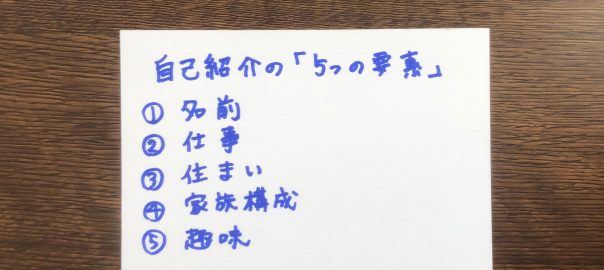 自己紹介の「5つの要素」
① 名前
② 仕事
③ 住まい
④ 家族構成
⑤ 趣味